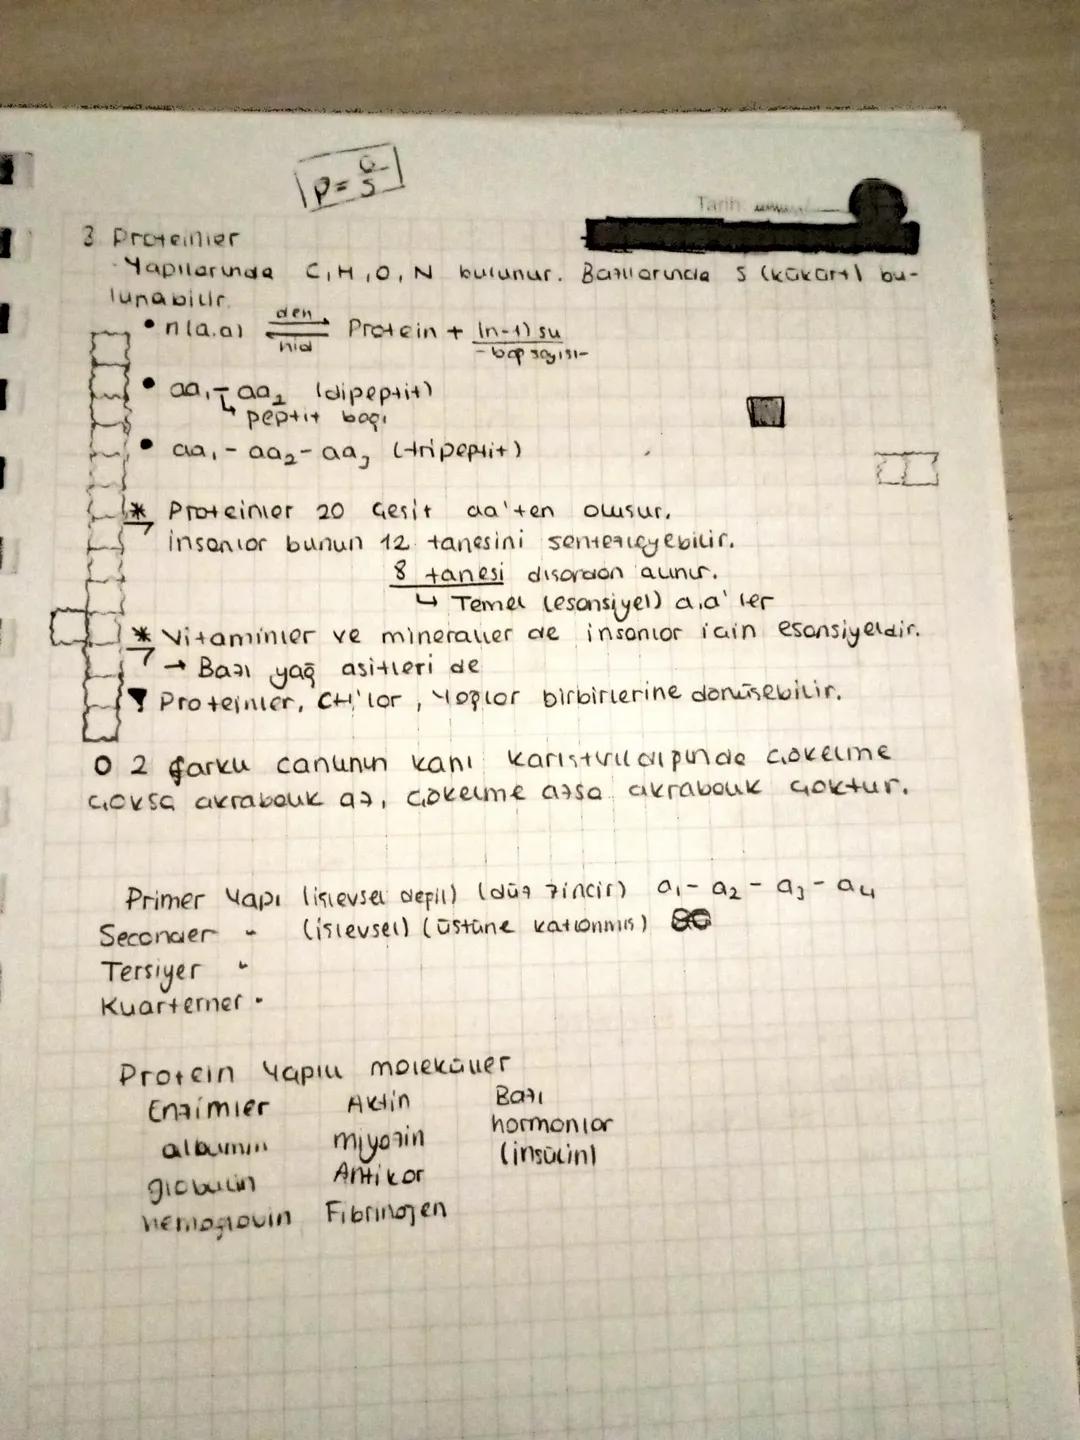 P = Q/S
Tarih:
3 Proteinler
Yapılarında C, H, O, N bulunur. Bazılarında S (kükürt) bu-
lunabilir.
• n(a.a) den ⇌ hid Protein + (n-1) su
- bağ sayısı -
• aa₁ - aa₂ (dipeptit)
↳ peptit bağı
• aa₁ - aa₂ - aa₃ (tripeptit)
* Proteinler 20 çeşit aa'ten oluşur.
İnsanlar bunun 12 tanesini sentezleyebilir.
8 tanesi dışardan alınır.
↳ Temel (esansiyel) a.a'ler
* Vitaminler ve mineraller de insanlar için esansiyeldir.
→ Bazı yağ asitleri de
Proteinler, CH'lar, yağlar birbirlerine dönüşebilir.
O 2 farklı canlının kanı karıştırıldığında çökelme
çoksa akrabalık az, çökelme azsa akrabalık çoktur.
Primer Yapı (işlevsel değil) (düz zincir) a₁ - a₂ - a₃ - a₄
Seconder " (işlevsel) (üstüne katlanmış)
Tersiyer "
Kuarterner "
Protein Yapılı moleküller
Enzimler Aktin Bazı
albumin miyozin hormonlar
globulin Antikor (insülin)
hemoglobin Fibrinojen